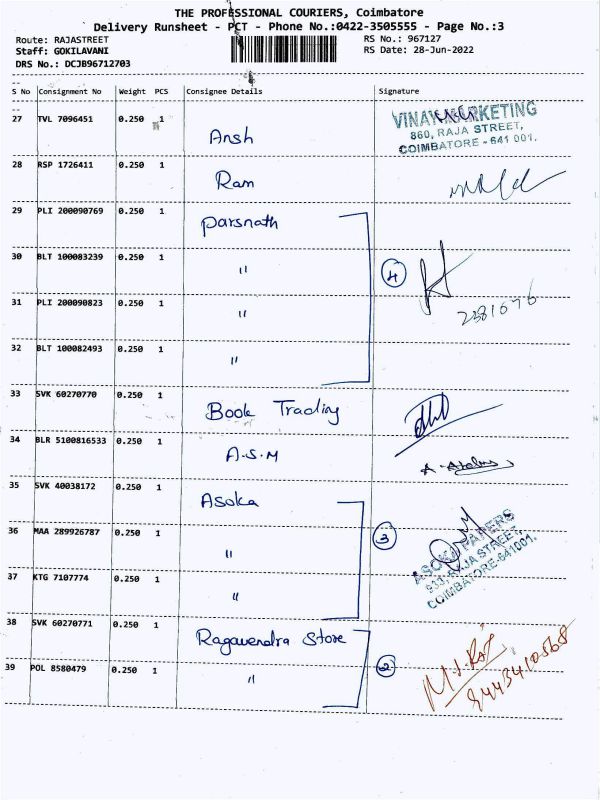 THE PROFESSIONAL COURIERS, Coimbatore
Delivery Runsheet - PCT - Phone No.:0422-3505555 - Page No.:3
Route: RAJASTREET RS No.: 967127
Staff: GOKILAVANI RS Date: 28-Jun-2022
DRS No.: DCJB96712703
S No Consignment No Weight PCS Consignee Details Signature
27 TVL 7096451 0.250 1 Ansh VINAY MARKETING
860, RAJA STREET,
COIMBATORE - 641 001.
28 RSP 1726411 0.250 1 Ram
29 PLI 200090769 0.250 1 Parsnath
30 BLT 100083239 0.250 1 " 4
31 PLI 200090823 0.250 1 " 2381676
32 BLT 100082493 0.250 1 "
33 SVK 60270770 0.250 1 Book Trading
34 BLR 5100816533 0.250 1 A.S.M
35 SVK 40038172 0.250 1 Asoka
36 MAA 289926787 0.250 1 " 3 ASOKA PAPERS
933, RAJA STREET,
COIMBATORE-641001.
37 KTG 7107774 0.250 1 "
38 SVK 60270771 0.250 1 Ragavendra Store
39 POL 8580479 0.250 1 " 2 M.J.Raj